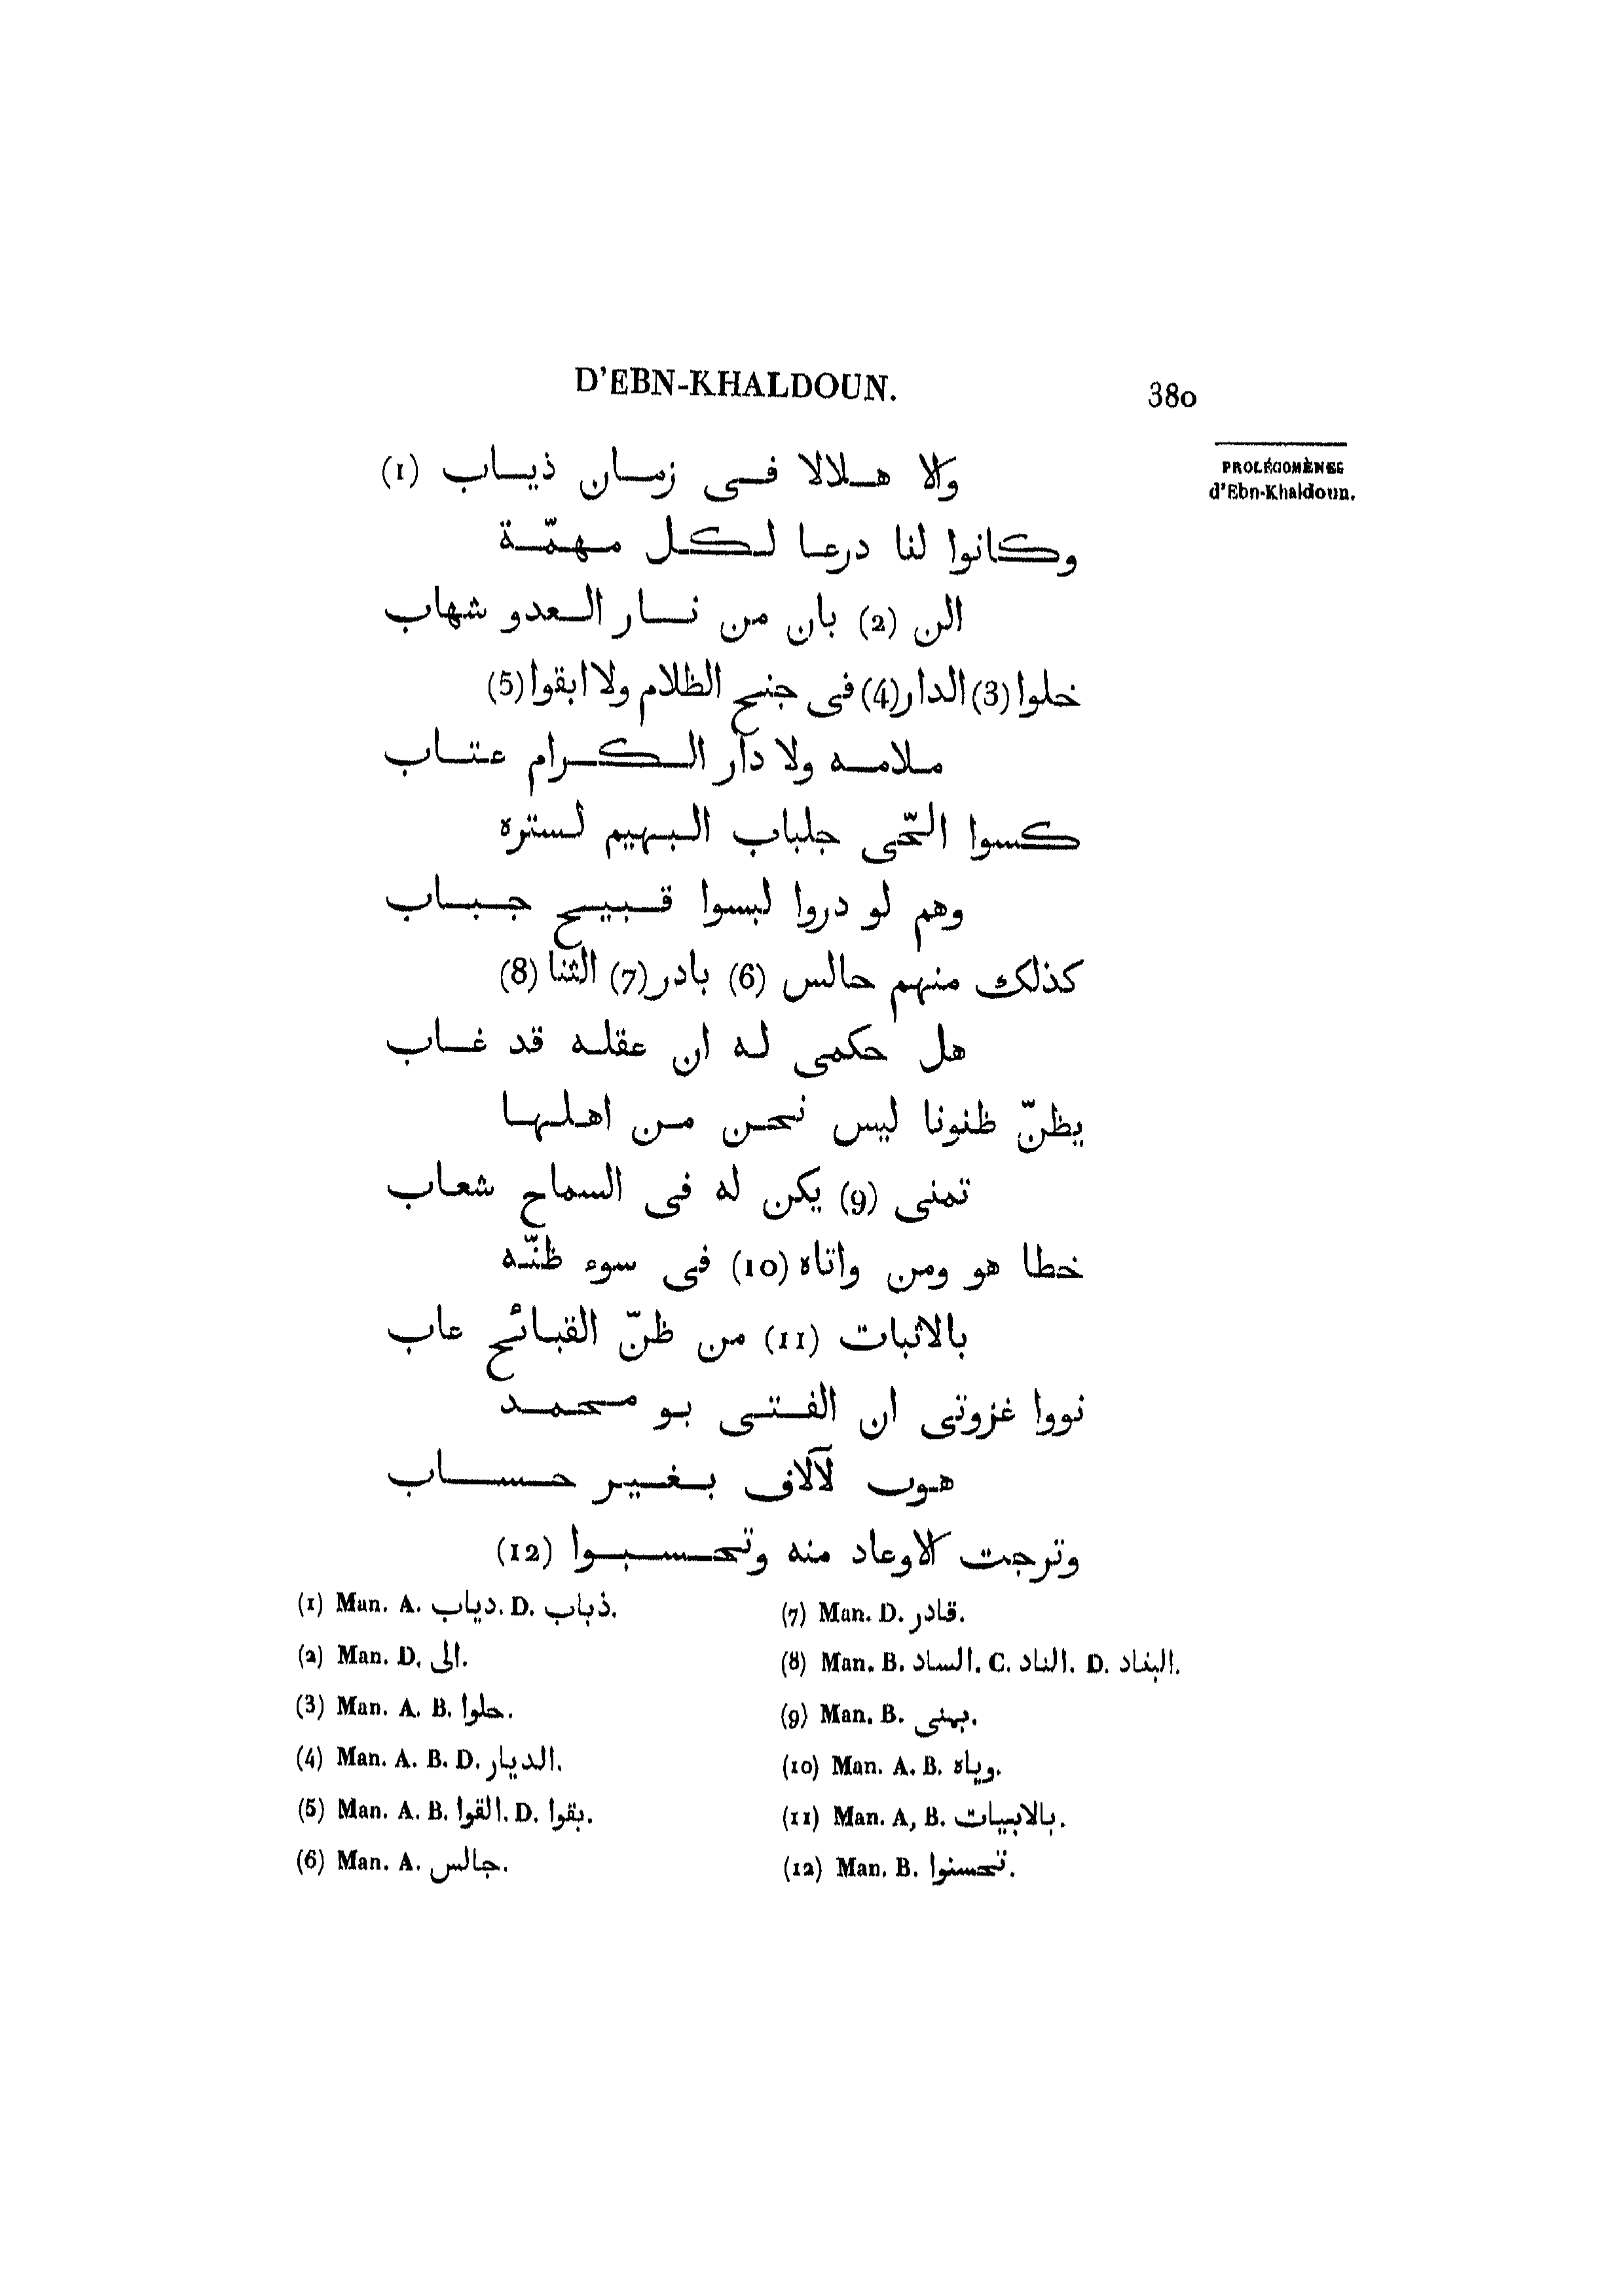 D'EBN-KHALDOUN.
380
PROLÉGOMÈNES
d'Ebn-Khaldoun.
ولا هلالا فى زمان ذياب (1)
وكانوا لنا درعا لكل مهمّة
الن (2) بان من نار العدو شهاب
خلوا (3) الدار (4) فى جنح الظلام ولا ابقوا (5)
ملامه ولا دار الكرام عتاب
كسوا الحّى جلباب البهيم لستره
وهم لو دروا لبسوا قبيح جباب
كذلك منهم حالس (6) بادر (7) الثنا (8)
هل حكمى له ان عقله قد غاب
يظنّ ظنونا ليس نحن من اهلها
تمنى (9) يكن له فى السماح شعاب
خطا هو ومن واتاه (10) فى سوء ظنّه
بالاثبات (11) من ظنّ القبائح عاب
نووا غزوتى ان الفتى بو محمد
هوب لآلاف بغير حساب
وترجت الاوعاد منه وتحسبوا (12)
(1) Man. A. دياب. D. ذباب.
(2) Man. D. الى.
(3) Man. A. B. حلوا.
(4) Man. A. B. D. الديار.
(5) Man. A. B. القوا. D. بقوا.
(6) Man. A. جالس.
(7) Man. D. قادر.
(8) Man. B. الساد. C. الناد. D. البناد.
(9) Man. B. بهنى.
(10) Man. A. B. وياه.
(11) Man. A, B. بالابيات.
(12) Man. B. تحسنوا.